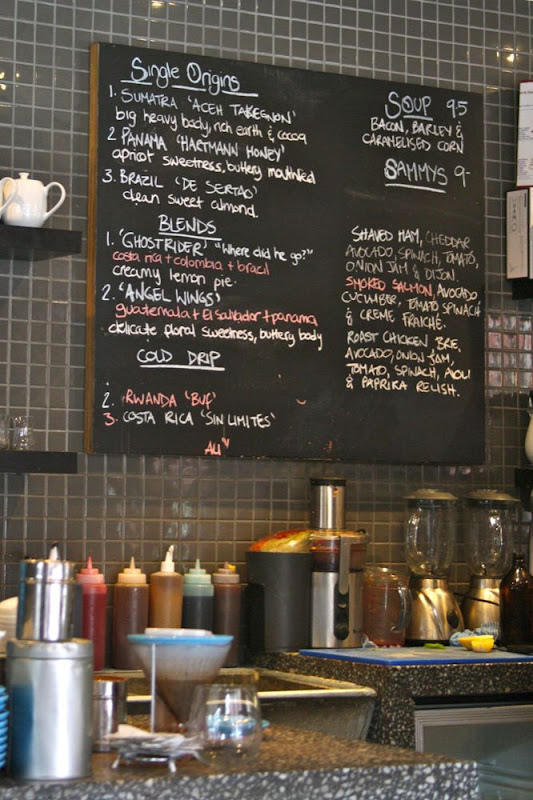 Single Origins
1. SUMATRA 'ACEH TAKEGNON'
big heavy body, rich earth & cocoa
2. PANAMA 'HARTMANN HONEY'
apricot sweetness, buttery mouthfeel
3. BRAZIL 'DE SERTAO'
clean sweet almond.
BLENDS
1. 'GHOSTRIDER' "Where did he go?"
costa rica + colombia + brazil
creamy lemon pie.
2. 'ANGEL WINGS'
guatemala + El salvador + panama
delicate floral sweetness, buttery body
COLD DRIP
2. RWANDA 'BUF'
3. COSTA RICA 'SIN LIMITES'
SOUP 9.5
BACON, BARLEY &
CARAMELISED CORN
SAMMYS 9-
SHAVED HAM, CHEDDAR
AVOCADO, SPINACH, TOMATO,
ONION JAM & DIJON.
SMOKED SALMON, AVOCADO
CUCUMBER, TOMATO SPINACH
& CREME FRAICHE.
ROAST CHICKEN, BRIE,
AVOCADO, ONION JAM,
TOMATO, SPINACH, AIOLI
& PAPRIKA RELISH.